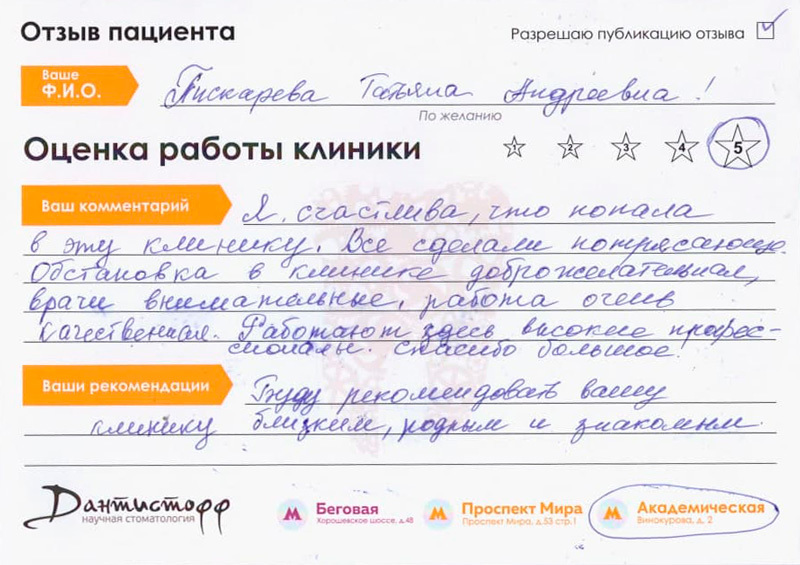 Отзыв пациента
Разрешаю публикацию отзыва
Ваше
Ф.И.О.
Пискарева Татьяна Андреевна!
По желанию
Оценка работы клиники
1 2 3 4 5
Ваш комментарий
Я счастлива, что попала
в эту клинику. Все сделали потрясающе.
Обстановка в клинике доброжелательная,
врачи внимательные, работа очень
качественная. Работают здесь высокие профес-
сионалы. Спасибо большое!
Ваши рекомендации
Буду рекомендовать вашу
клинику близким, родным и знакомым.
Дантистофф
научная стоматология
М Беговая
Хорошевское шоссе, д.48
М Проспект Мира
Проспект Мира, д.53 стр.1
М Академическая
Винокурова, д. 2